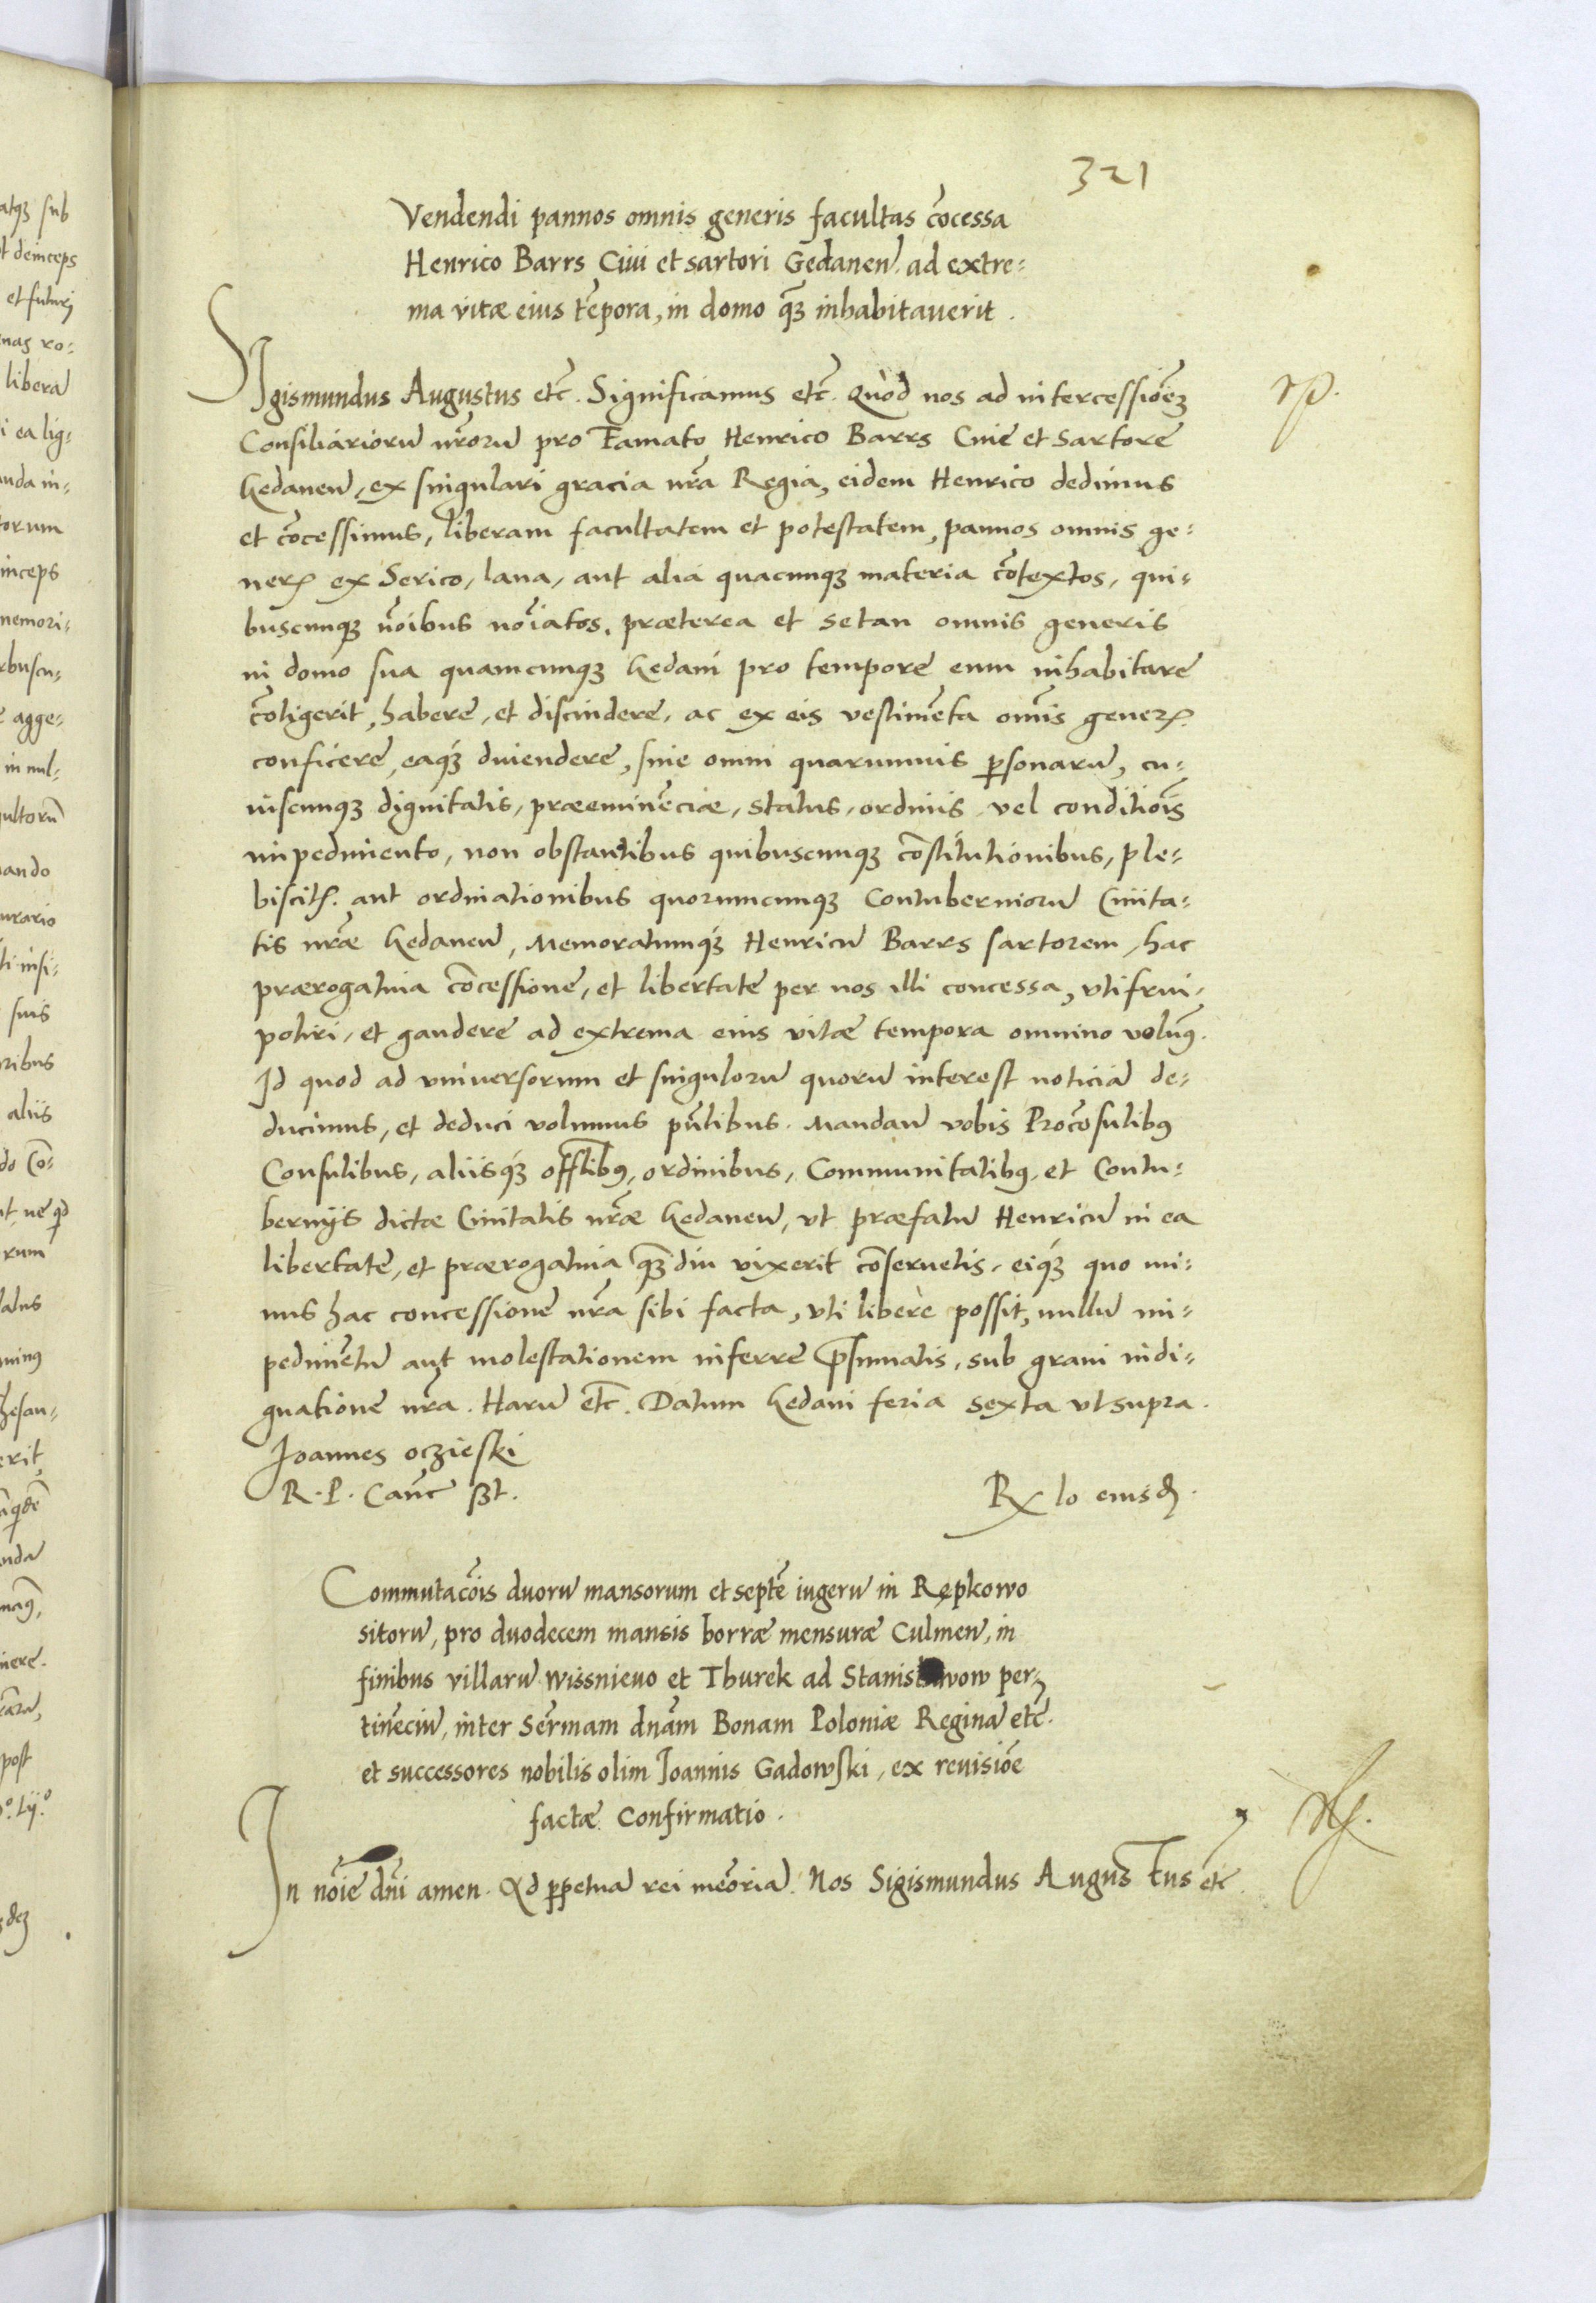 321
Vendendi pannos omnis generis facultas cōcessa
Henrico Barrs Ciui et sartori Gedaneñ. ad extre=
ma vitæ eius tēpora, in domo q̄ꝫ inhabitauerit.
SIgismundus Augustus etc̄. Significamus etc̄. Quòd nos ad intercessiōeꝫ
Consiliariorū nr̄orū pro Famato Henrico Barrs Ciue et Sartore
Gedaneñ, ex singulari gracia nr̄a Regia, eidem Henrico dedimus
et cōcessimus, liberam facultatem et potestatem, pannos omnis ge=
neris ex Serico, lana, aut alia quacunqꝫ materia cōtextos, qui=
buscunqꝫ nōibus nōiatos, præterea et setan omnis generis
in domo sua quamcunqꝫ Gedani pro tempore eum inhabitare
cōtigerit, habere, et discindere, ac ex eis vestimēta om̄is generis
conficere, eaqꝫ diuendere, sine omni quarumuis ꝑsonarū, cu=
iuscunqꝫ dignitatis, præeminēciæ, status, ordinis vel conditiōis
impedimento, non obstantibus quibuscunqꝫ cōstitutionibus, ple=
biscitis aut ordinationibus quorumcunqꝫ Contuberniorū Ciuita=
tis nr̄æ Gedaneñ, Memoratumqꝫ Henricū Barrs sartorem, hac
prærogatiua cōcessione, et libertate per nos illi concessa, vti frui,
potiri, et gaudere ad extrema eius vitæ tempora omnino volum9.
Id quod ad vniuersorum et singulorū quorū interest noticiā de=
ducimus, et deduci volumus pn̄tibus. Mandañ vobis Procōsulib9
Consulibus, aliisqꝫ offt̄ib9, ordinibus, Communitatib9, et Contu=
bernijs dictæ Ciuitatis nr̄æ Gedaneñ, vt præfatū Henricū in ea
libertate, et prærogatiua q̄ꝫdiu vixerit cōseruetis, eiqꝫ quo mi=
nus hac concessione nr̄a sibi facta, vti liberè possit, nullū im=
pedimētū aut molestationem inferre p̄sumatis, sub graui indi=
gnatione nr̄a. Harū etc̄. Datum Gedani feria sexta vt supra.
Joannes oczieski
R. P. Canc̄ sßt.
Rx lo eiusd.
Commutac̄ois duorū mansorum et septē iugerū in Repkowo
sitorū, pro duodecem mansis borræ mensuræ Culmeñ, in
finibus villarū wissnieuo et Thurek ad Stanis wow per=
tinēciū, inter Serm̄am dn̄am Bonam Poloniæ Reginā etc̄.
et successores nobilis olim Joannis Gadowski, ex reuisiōe
factæ Confirmatio.
In nōie dn̄i amen. Ad ꝑpetuā rei meōriā. Nos Sigismundus Augustus etc̄